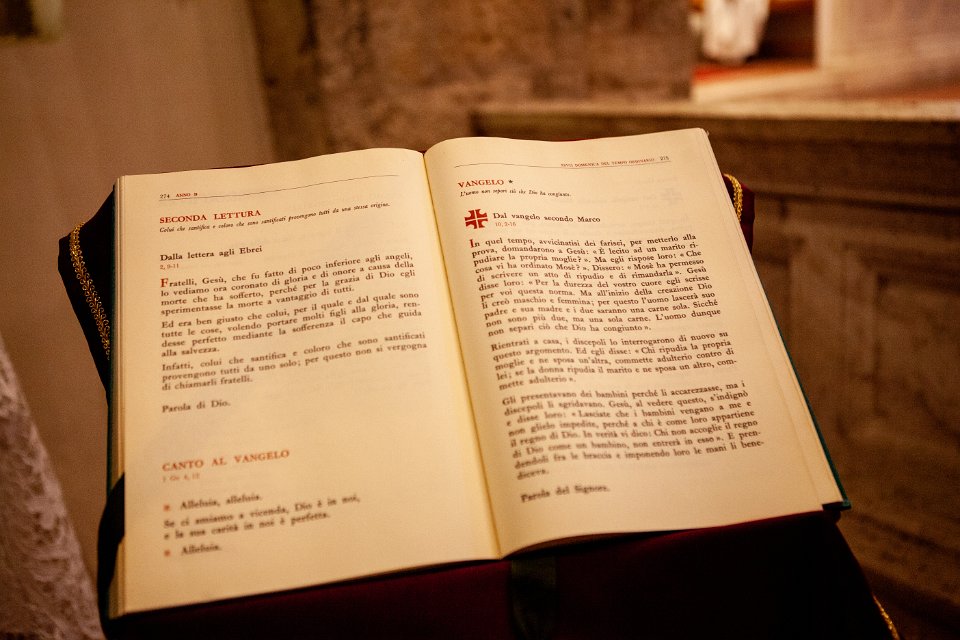 274 ANNO B
SECONDA LETTURA
Colui che santifica e coloro che sono santificati provengono tutti da una stessa origine.
Dalla lettera agli Ebrei
2, 9-11
Fratelli, Gesù, che fu fatto di poco inferiore agli angeli,
lo vediamo ora coronato di gloria e di onore a causa della
morte che ha sofferto, perché per la grazia di Dio egli
sperimentasse la morte a vantaggio di tutti.
Ed era ben giusto che colui, per il quale e dal quale sono
tutte le cose, volendo portare molti figli alla gloria, ren-
desse perfetto mediante la sofferenza il capo che guida
alla salvezza.
Infatti, colui che santifica e coloro che sono santificati
provengono tutti da uno solo; per questo non si vergogna
di chiamarli fratelli.
Parola di Dio.
CANTO AL VANGELO
1 Gv 4, 12
Alleluia, alleluia.
Se ci amiamo a vicenda, Dio è in noi,
e la sua carità in noi è perfetta.
Alleluia.
XXVII DOMENICA DEL TEMPO ORDINARIO 275
VANGELO *
L'uomo non separi ciò che Dio ha congiunto.
Dal vangelo secondo Marco
10, 2-16
In quel tempo, avvicinatisi dei farisei, per metterlo alla
prova, domandarono a Gesù: « È lecito ad un marito ri-
pudiare la propria moglie? ». Ma egli rispose loro: « Che
cosa vi ha ordinato Mosè? ». Dissero: « Mosè ha permesso
di scrivere un atto di ripudio e di rimandarla ». Gesù
disse loro: « Per la durezza del vostro cuore egli scrisse
per voi questa norma. Ma all'inizio della creazione Dio
li creò maschio e femmina; per questo l'uomo lascerà suo
padre e sua madre e i due saranno una carne sola. Sicché
non sono più due, ma una sola carne. L'uomo dunque
non separi ciò che Dio ha congiunto ».
Rientrati a casa, i discepoli lo interrogarono di nuovo su
questo argomento. Ed egli disse: « Chi ripudia la propria
moglie e ne sposa un'altra, commette adulterio contro di
lei; se la donna ripudia il marito e ne sposa un altro, com-
mette adulterio ».
Gli presentavano dei bambini perché li accarezzasse, ma i
discepoli li sgridavano. Gesù, al vedere questo, s'indignò
e disse loro: « Lasciate che i bambini vengano a me e
non glielo impedite, perché a chi è come loro appartiene
il regno di Dio. In verità vi dico: Chi non accoglie il regno
di Dio come un bambino, non entrerà in esso ». E pren-
dendoli fra le braccia e imponendo loro le mani li bene-
diceva.
Parola del Signore.